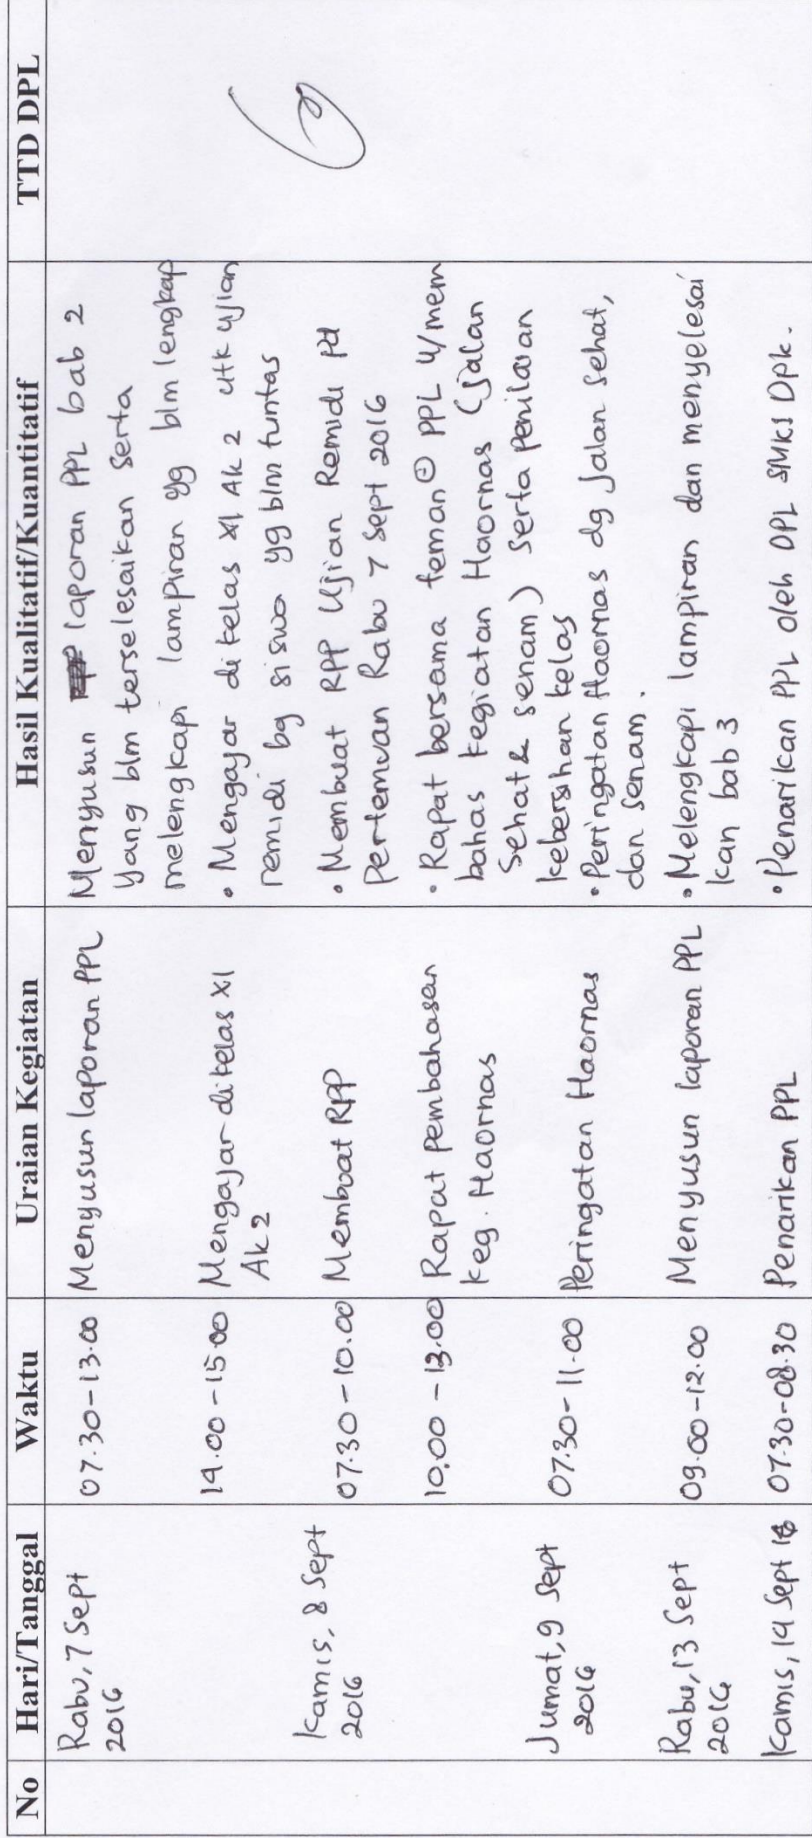 No Hari/Tanggal Waktu Uraian Kegiatan Hasil Kualitatif/Kuantitatif TTD DPL
Rabu, 7 Sept 07.30-13.00 Menyusun laporan PPL Menyusun laporan PPL bab 2
2016 yang blm terselesaikan serta
melengkapi lampiran yg blm lengkap
14.00-15.00 Mengajar di kelas XI • Mengajar di kelas XI Ak 2 utk ujian
Ak 2 remidi bg siswa yg blm tuntas
Kamis, 8 Sept 07.30-10.00 Membuat RPP • Membuat RPP Ujian Remidi pd
2016 Pertemuan Rabu 7 Sept 2016
10.00-13.00 Rapat pembahasan • Rapat bersama teman² PPL u/mem
keg. Haornas bahas kegiatan Haornas (jalan
sehat & senam) serta penilaian
kebersihan kelas
Jumat, 9 Sept 07.30-11.00 Peringatan Haornas • Peringatan Haornas dg jalan sehat,
2016 dan senam.
Rabu, 13 Sept 09.00-12.00 Menyusun laporan PPL • Melengkapi lampiran dan menyelesai
2016 kan bab 3
Kamis, 14 Sept 16 07.30-08.30 Penarikan PPL • Penarikan PPL oleh DPL SMKS Dpk.